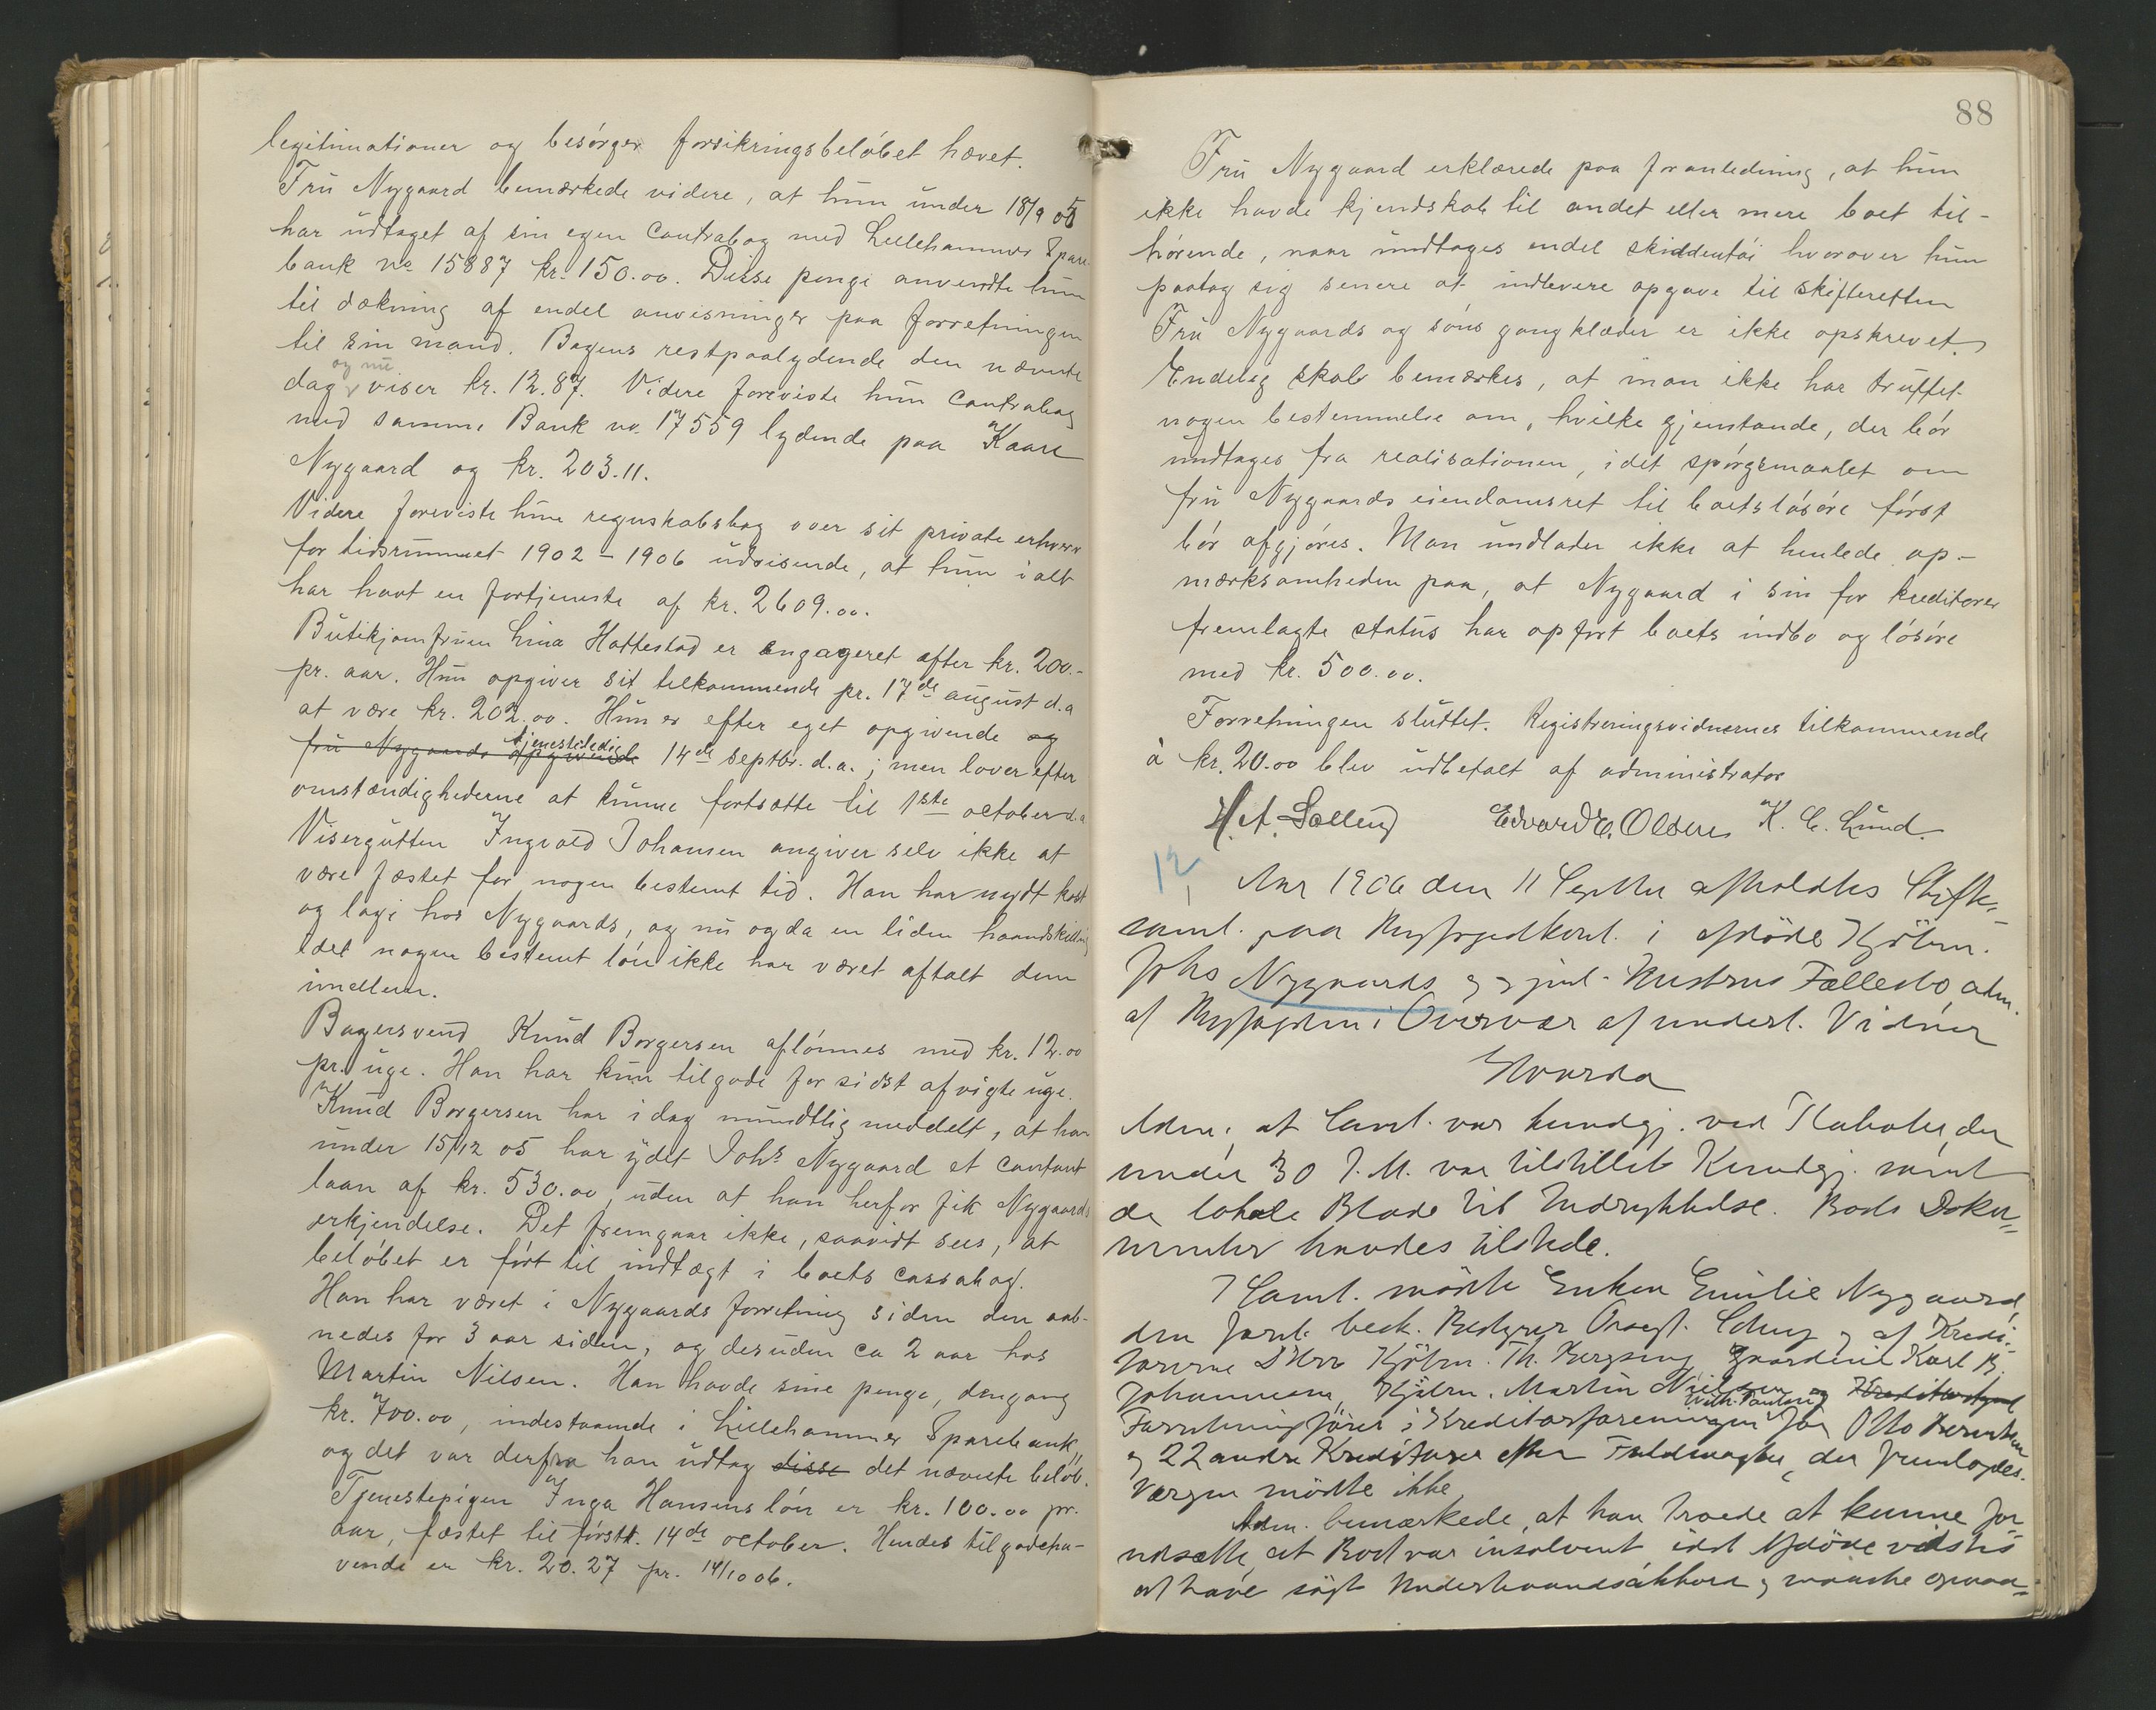 legitimationer og besørger forsikringsbeløbet hævet.
Fru Nygaard bemærkede videre, at hun under 18/9 05
har udtaget af sin egen Contrabog med Lillehammer Spare-
bank no 15887 kr. 150.00. Disse penge anvendte hun
til dækning af endel anvisninger paa forretningen
til sin mand. Bogens restpaalydende den nævnte
dag og nu viser kr. 12.87. Videre foreviste hun Contrabog
med samme Bank no. 17559 lydende paa Kaare
Nygaard og kr. 203.11.
Videre foreviste hun regnskabsbog over sit private erhverv
for tidsrummet 1902 – 1906 udvisende, at hun ialt
har havt en fortjeneste af kr. 2609.00.
Butikjomfruen Lina Hattestad er engageret efter kr. 200.-
pr. aar. Hun opgiver sit tilkommende pr. 17de august d.a
at være kr. 202.00. Hun er efter eget opgivende og
fru Nygaards opgivende tjenesteledig 14de septbr. d.a.; men lover efter
omstændighederne at kunne fortsætte til 1ste october d.a
Visergutten Ingvald Johansen angiver selv ikke at
være fæstet for nogen bestemt tid. Han har nydt kost
og logi hos Nygaards, og nu og da en liden haandskilling
idet nogen bestemt løn ikke har været aftalt dem
imellem.
Bagersvend Knud Borgersen aflønnes med kr. 12.00
pr. uge. Han har kun tilgode for sidst afvigte uge.
Knud Borgersen har i dag mundtlig meddelt, at han
under 15/12 05 har ydet Johs Nygaard et contant
laan af kr. 530.00, uden at han herfor fik Nygaards
erkjendelse. Det fremgaar ikke, saavidt sees, at
beløbet er ført til indtægt i boets cassabog.
Han har været i Nygaards forretning siden den aab-
nedes for 3 aar siden, og desuden ca 2 aar hos
Martin Nilsen. Han havde sine penge, dengang
kr. 700.00, indestaaende i Lillehammer Sparebank,
og det var derfra han udtog disse det nævnte beløb.
Tjenestepigen Inga Hansens løn er kr. 100.00 pr.
aar, fæstet til førstk. 14de october. Hendes tilgodeha-
vende er kr. 20.27 pr. 14/10 06.
88
Fru Nygaard erklærede paa foranledning, at hun
ikke havde kjendskab til andet eller mere boet til-
hørende, naar undtages endel skiddentøi hvorover hun
paatog sig senere at indlevere opgave til skifteretten
Fru Nygaards og søns gangklæder er ikke opskrevet.
Endelig skal bemærkes, at man ikke har truffet
nogen bestemmelse om, hvilke gjenstande, der bør
undtages fra realisationen, idet spørgsmaalet om
fru Nygaards eiendomsret til boets løsøre først
bør afgjøres. Man undlader ikke at henlede op-
mærksomheden paa, at Nygaard i sin for kreditorer
fremlagte status har opført boets indbo og løsøre
med kr. 500.00.
Forretningen sluttet. Registreringsvidnernes tilkommende
à kr. 20.00 blev udbetalt af administrator
Edvard E. Olsen K. C. Lund.
12
Aar 1906 den 11 Septbr afholdtes Skifte-
saml. paa Byfogedkont. i afdøde Kjøbm.
Johs Nygaards og gjenl. Hustrus Fællesbo, adm.
af Byfogden i Overvær af undert. Vidner
Hvorda
Adm. at Saml. var kundgj. ved Plakater, der
under 30 f. M. var tilstillet Kundgj. samt
de lokale Blade til Indrykkelse. Boets Doku-
menter havdes tilstede.
I Saml. mødte Enken Emilie Nygaard,
den besk. Bestyrer og af Kredi-
torerne Kjøbm. Th. Karl B.
Johannesen, Kjøbm. Martin Nielsen og
Forretningsfører i Kreditorforeningen for Otto
og 22 andre Kreditorer efter Fuldmagter, der fremlagdes.
Værgen mødte ikke
Adm. bemærkede, at han troede at kunne for-
udsætte, at Boet var insolvent, idet Afdøde vidstes
at have søgt Underhaandsakkord og